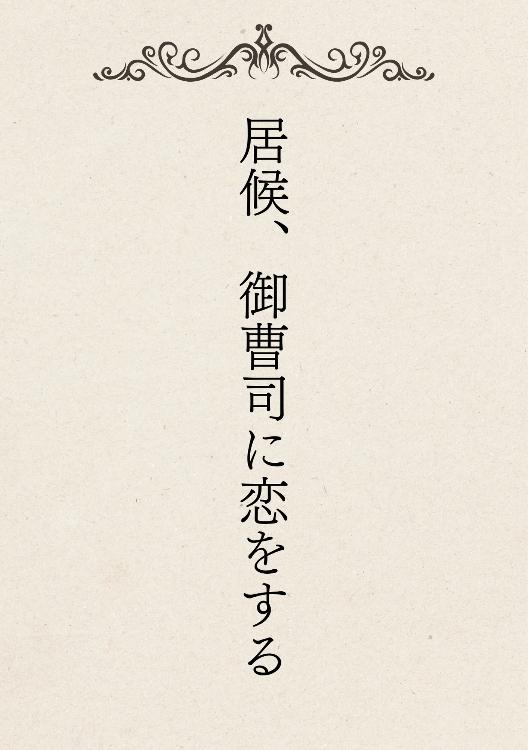 居候、御曹司に恋をする